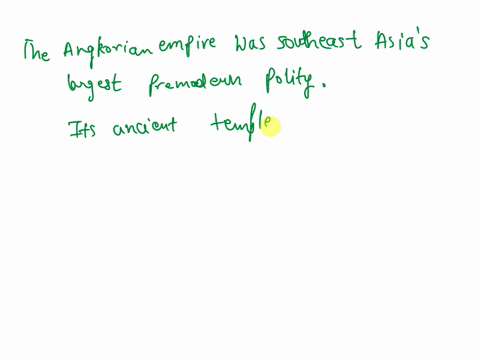 The Angkorian empire was southeast Asia's
largest premodern polity.
Its ancient temple